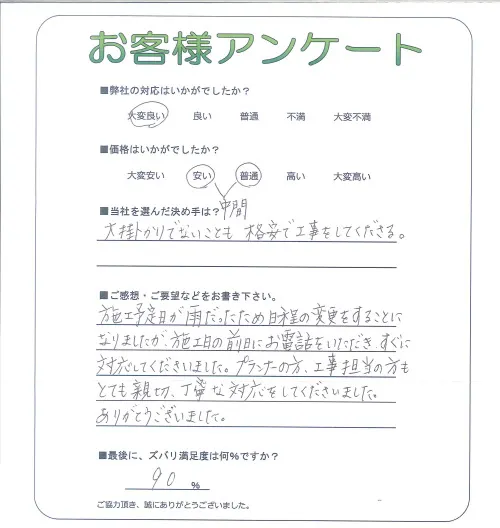 お客様アンケート
■弊社の対応はいかがでしたか？
大変良い 良い 普通 不満 大変不満
■価格はいかがでしたか？
大変安い 安い 普通 高い 大変高い
中間
■当社を選んだ決め手は？
大掛かりでないことも 格安で工事をしてくださる。
■ご感想・ご要望などをお書き下さい。
施工予定日が雨だったため日程の変更をすることに
なりましたが、施工日の前日にお電話をいただき、すぐに
対応してくださいました。プランナーの方、工事担当の方も
とても親切、丁寧な対応をしてくださいました。
ありがとうございました。
■最後に、ズバリ満足度は何%ですか？
90 %
ご協力頂き、誠にありがとうございました。